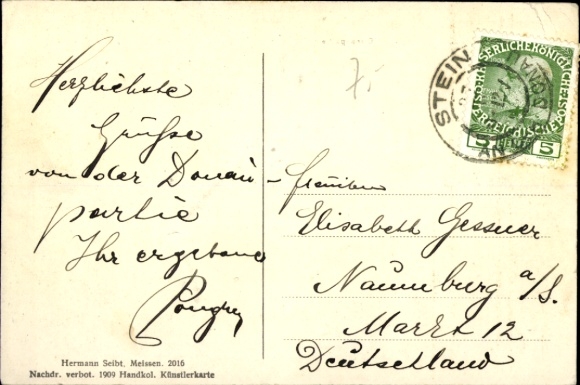 Herzlichste
Grüße
von der Donau-
partie
Ihr ergebene
Fräulein
Elisabeth Gessner
Naumburg a/S.
Markt 12
Deutschland
7,-
STEIN
AN
DONAU
KAISERLICHE KÖNIGLICHE
ÖSTERREICHISCHE POST
5 HELLER 5
Hermann Seibt, Meissen. 2016
Nachdr. verbot. 1909 Handkol. Künstlerkarte